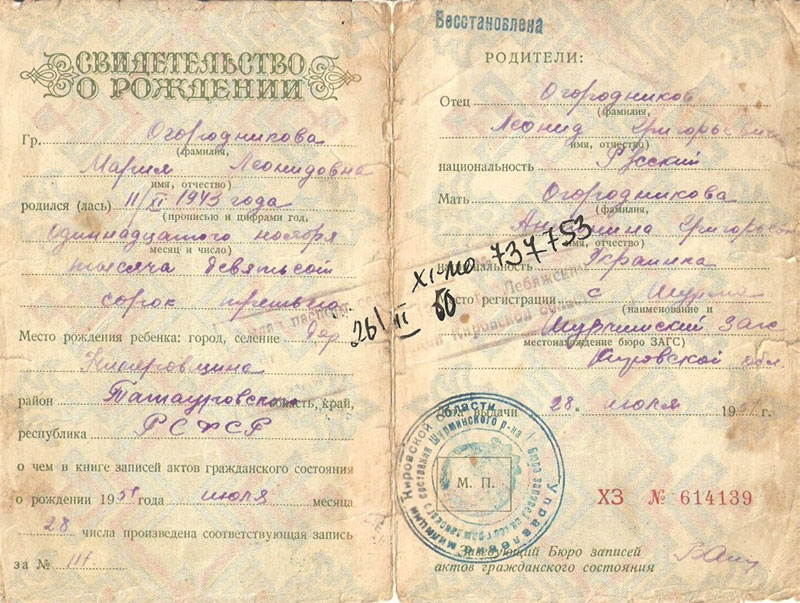 СВИДЕТЕЛЬСТВО
О РОЖДЕНИИ
Гр. Огородникова
(фамилия,
Мария Леонидовна
имя, отчество)
родился (лась) 11/XI 1943 года
(прописью и цифрами год,
одиннадцатого ноября
месяц и число)
тысяча девятьсот
сорок третьего
Место рождения ребенка: город, селение дер.
район Ташауровский область, край,
республика РСФСР
о чем в книге записей актов гражданского состояния
о рождении 1951 года июля месяца
28 числа произведена соответствующая запись
за № III
Восстановлена
РОДИТЕЛИ:
Отец Огородников
(фамилия,
Леонид Григорьевич
имя, отчество)
национальность Русский
Мать Огородникова
(фамилия,
Григорьевна
имя, отчество)
национальность Украинка
Место регистрации с. Шурма
(наименование и
Шурминский Загс
местонахождение бюро ЗАГС)
Кировской обл.
Дата выдачи 28 июля 1951 г.
М. П.
ХЗ № 614139
Заведующий Бюро записей
актов гражданского состояния
XI-МЮ 737753
26/II 60